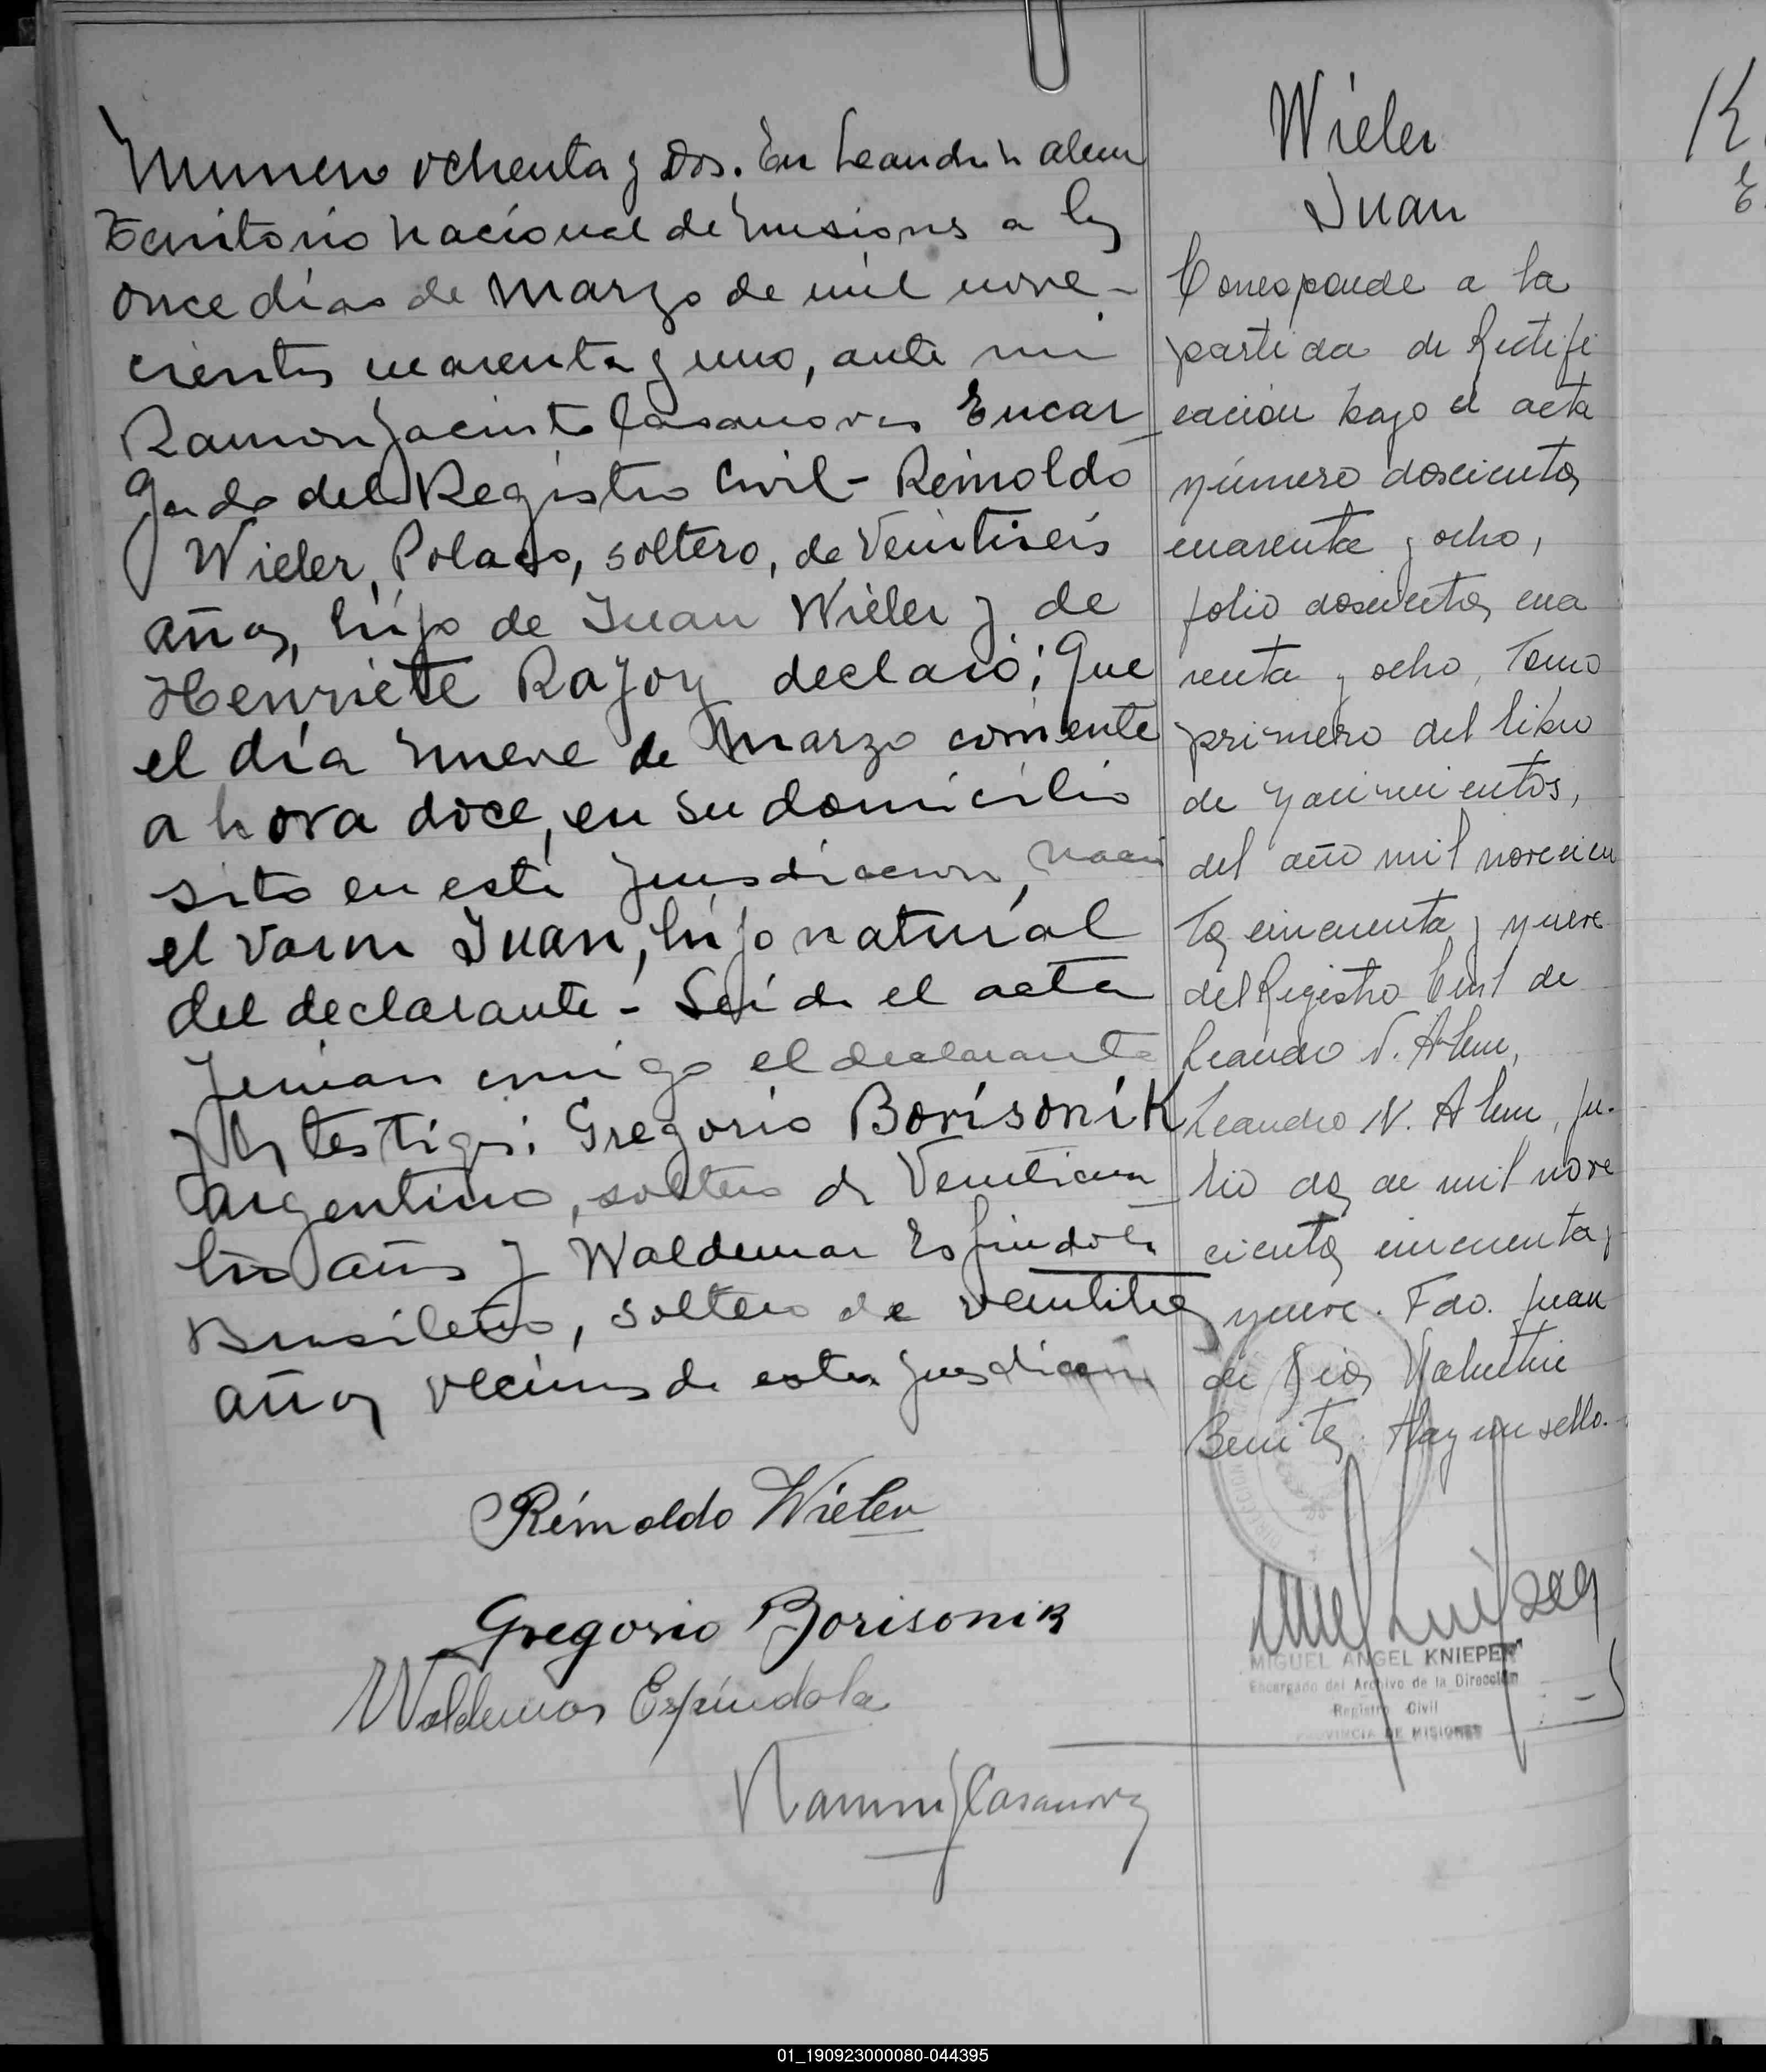 Numero ochenta y dos. En Leandro N Alem
Territorio Nacional de Misiones a los
once días de Marzo de mil nove-
cientos cuarenta y uno, ante mi
Ramon Jacinto Casanova Encar
gado del Registro Civil - Reinoldo
Wieler, Polaco, soltero, de Veintiseis
años, hijo de Juan Wieler y de
Henriete declaró; Que
el día nueve de Marzo corriente
a hora doce, en su domicilio
sito en esta jurisdiccion, nació
el varon Juan, hijo natural
del declarante - Leida el acta
firman conmigo el declarante
y los testigos: Gregorio Borisonik
argentino, soltero de Veinticua
tro años y Waldemar Espindola
Brasileño, soltero de veintitres
años vecinos de esta jurisdiccion
Reinoldo Wieler
Gregorio Borisonik
Waldemar Espindola
Ramon J Casanova
Wieler
Juan
Corresponde a la
partida de Rectifi
cación bajo el acta
número doscientos
cuarenta y ocho,
folio doscientos cua
renta y ocho, Tomo
primero del libro
de Nacimientos,
del año mil novecien
tos cincuenta y nueve
del Registro Civil de
Leandro N. Alem,
Leandro N. Alem, Ju-
lio dos de mil nove
cientos cincuenta y
nueve. Fdo. Juan
de Dios
Benitez. Hay un sello.
MIGUEL ANGEL KNIEPER
Encargado del Archivo de la Dirección
Registro Civil
PROVINCIA DE MISIONES
01_190923000080-044395